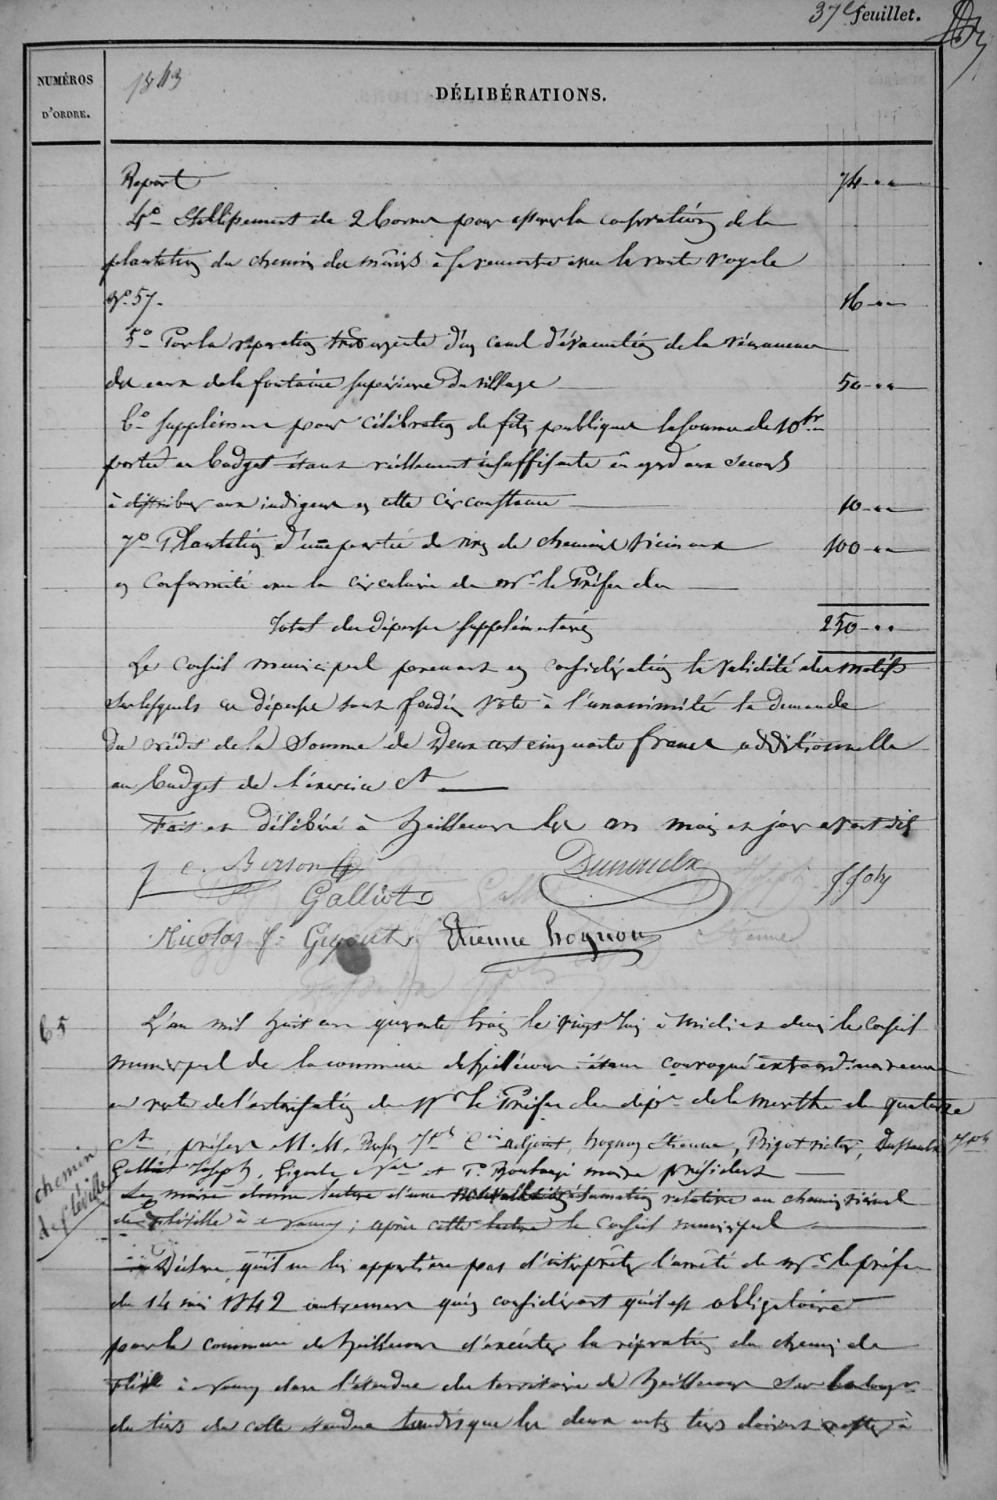 37e feuillet.
NUMÉROS
D'ORDRE.
1843
DÉLIBÉRATIONS.
Report 74 " "
4° Etablissement de 2 bornes pour assurer la conservation de la
plantation du chemin des mûriers à sa rencontre avec la route royale
N° 57. 16 " "
5° Pour la réparation très urgente d'un canal d'évacuation de la
des eaux de la fontaine supérieure du village 50 " "
6° Supplément pour célébration de fêtes publiques la somme de 10 fr
portée au budget étant réellement insuffisante eu égard aux secours
à distribuer aux indigens en cette circonstance 10 " "
7° Plantation d'une partie de rives de chemins vicinaux 100 " "
en Conformité avec la circulaire de Mr le Préfet du
Total des dépenses supplémentaires 250 " "
Le Conseil municipal prenant en considération la validité des motifs
sur lesquels ces dépenses sont fondées vote à l'unanimité la demande
du crédit de la Somme de Deux cent cinquante francs additionnelle
au budget de l'exercice Ct
Fait et délibéré à heillecourt les an mois et jour avant dits
J. C. Berson Dumoulin
Galliot
Nicolas f. Gigout Etienne hognon
65
L'an mil huit cent quarante trois le vingt à midi et demi le Conseil
municipal de la commune de heillécourt étant convoqué extraordinairement
en vertu de l'autorisation de Mr le Préfet du dépt de la Meurthe du quatorze
Ct présens M.M. Jph adjoint, hognon Etienne, Bigot victor, Jph
Galliot Joseph, Gigout Nas et P. maire président
chemin
de fléville
Le maire donne lecture d'une réclamation relative au chemin vicinal
de fléville à Nancy ; après cette lecture le Conseil municipal
Déclare qu'il ne lui appartient pas d'interpréter l'arrêté de Mr le préfet
du 14 mai 1842 autrement qu'en considérant qu'il est obligatoire
pour la commune de heillecourt d'exécuter la réparation du chemin de
fléville à Nancy dans l'étendue du territoire de heillecourt sur la longr
du tiers de cette étendue tandis que les deux autres tiers doivent rester à